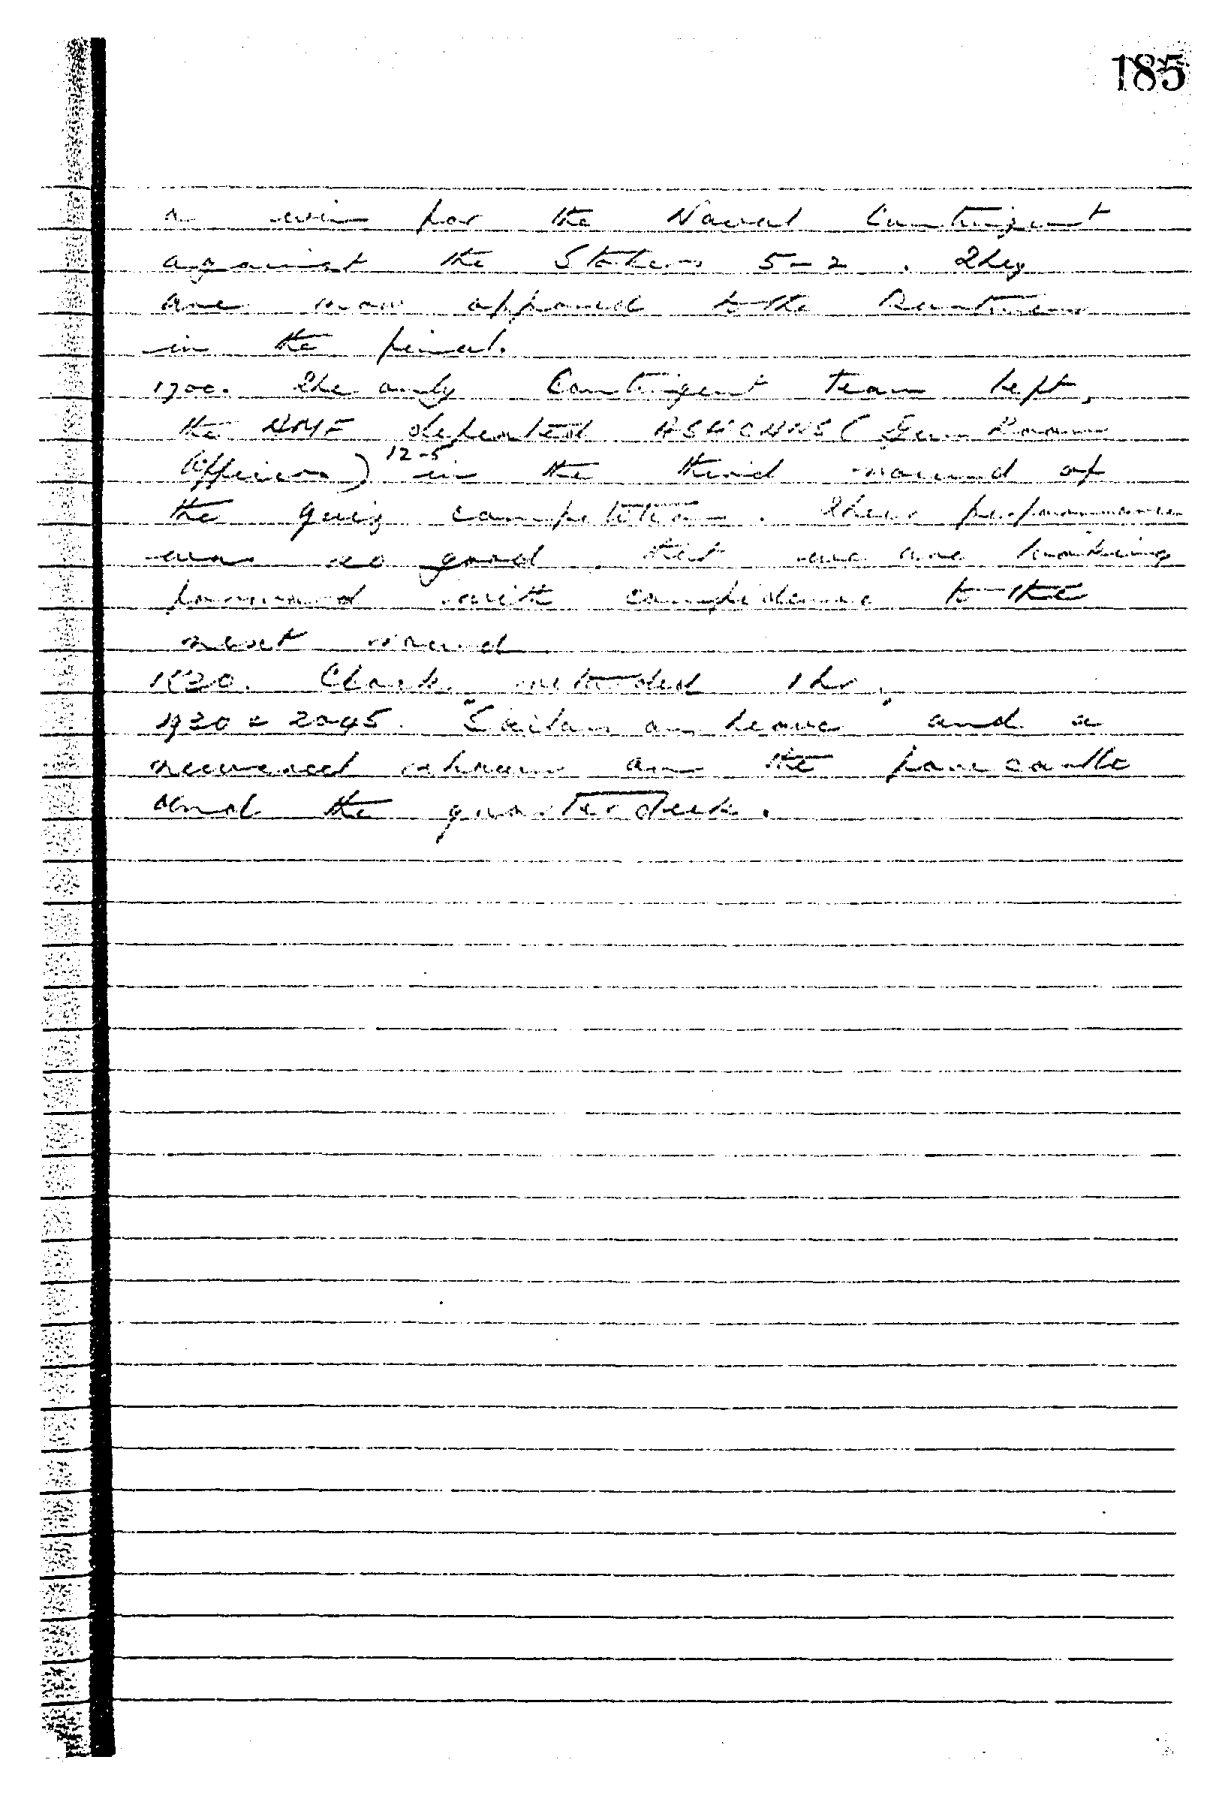 185
a win for the Naval Contingent
against the Stokers 5-2. They
are now opposed to the
in the final.
1700. The only Contingent team left,
the defeated (Gun Room
Officers) 12-5 in the third round of
the quiz competition. Their performance
was so good that we are looking
forward with confidence to the
next round
1820. Clock retarded 1 hr.
1930 & 2045. "Sailors on leave" and a
newsreel shown on the forecastle
and the quarterdeck.